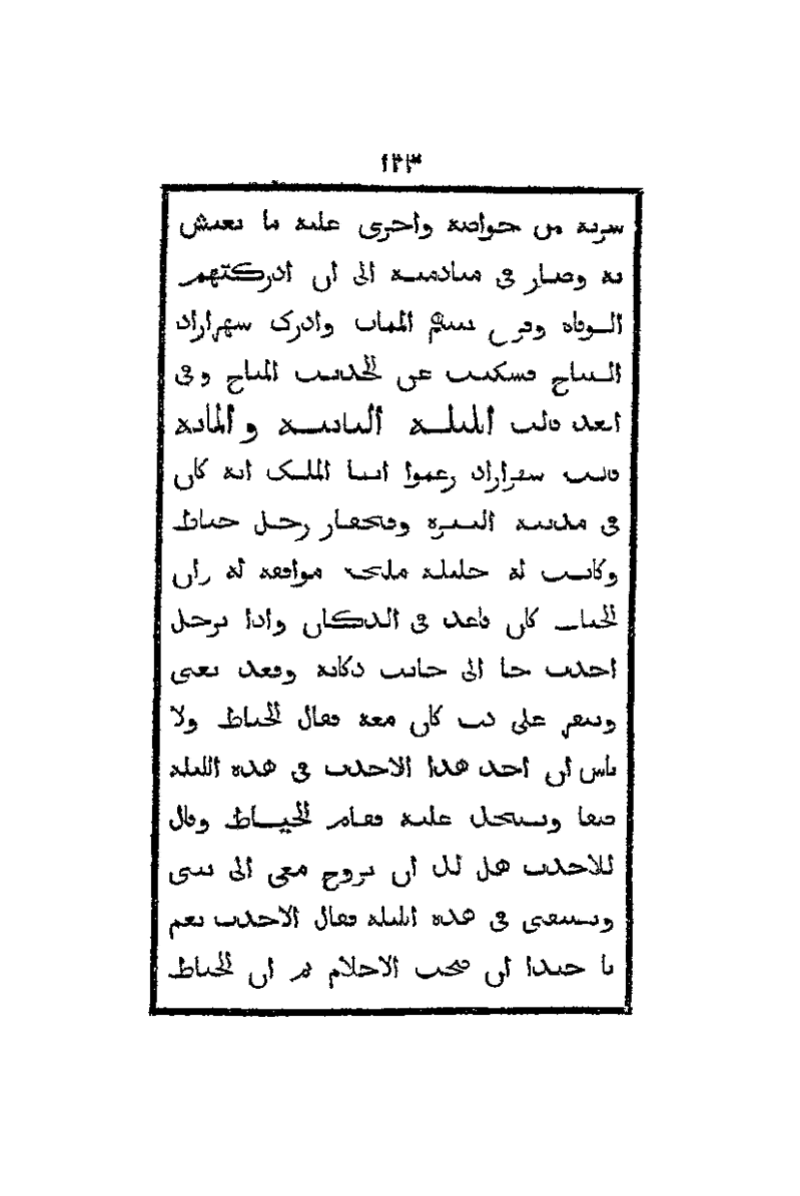 سرية من خواصه واجرى عليه ما يعيش
به وصار في منادمته الى ان ادركتهم
الوفاة وفرس المهاب وادرك شهرازاد
الصباح فسكتت عن الحديث المباح وفي
الغد قالت الليلة الثانية والماية
قالت شهرازاد زعموا ايها الملك انه كان
في مدينة البصرة وقجقار رجل خياط
وكانت له حليلة مليحة موافقة له وان
الخياط كان قاعد في الدكان واذا برجل
احدب جا الى جانب دكانه وقعد يغني
وينقر على دف كان معه فقال الخياط ولا
باس ان احد هذا الاحدب في هذه الليلة
عليه فقام الخياط وقال
للاحدب هل لك ان تروح معي الى بيتي
في هذه الليلة فقال الاحدب نعم
يا حبذا ان صحت الاحلام ثم ان الخياط